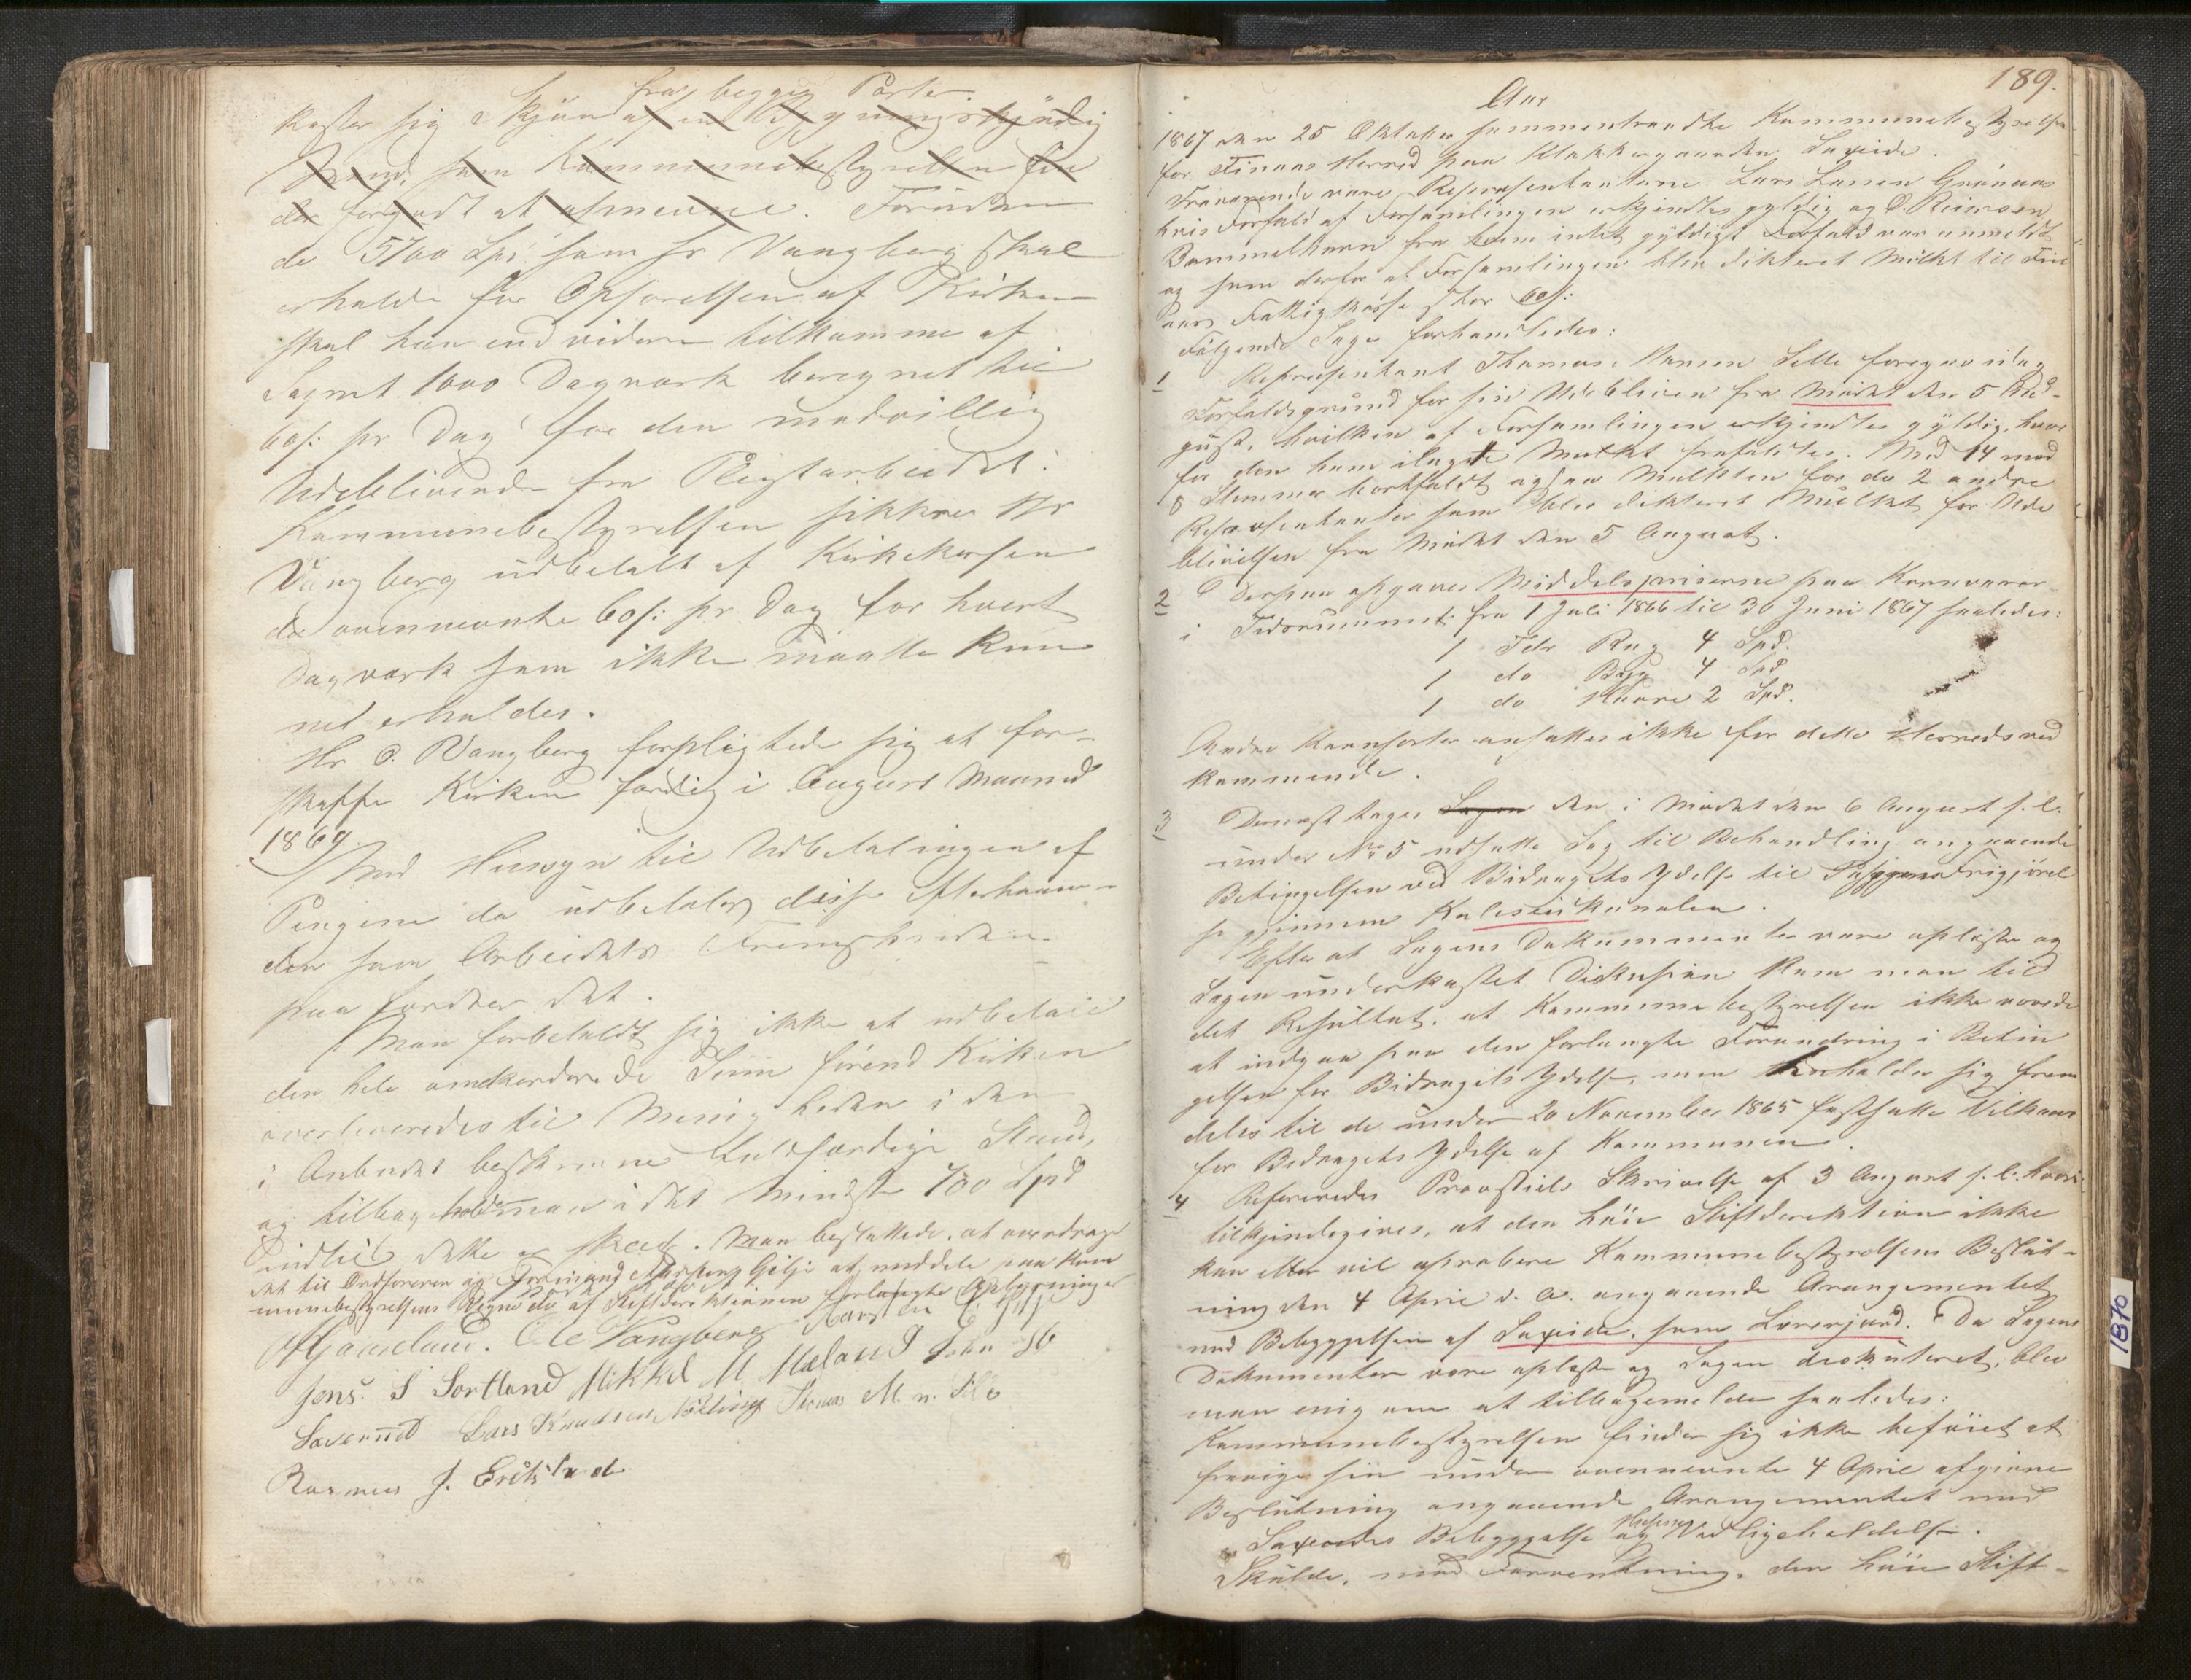 fra begge Parter.
Kaster sig Skjøn af en Bygningskyndig
Mand, som Kommunebestyrelsen fin
der forgodt at afnevne. Foruden
de 5700 Spd som Hr Vangberg skal
erholde for Opførelsen af Kirken
skal han end videre tilkomme af
Sognet 1000 Dagverk beregnet til
60 s: pr Dag for den modvillig
Udeblivende fra Pligtarbeidet.
Kommunebestyrelsen sikkrer Hr
Vangberg udbetalt af Kirkekassen
de ovennevnte 60 s: pr Dag for hvert
Dagverk som ikke maatte kun
net erholdes.
Hr O. Vangberg forpligtede sig at for-
skaffe Kirken færdig i August Maaned
1869.
Med Hensyn til Udbetalingen af
Pengene da udbetales disse efterhaan-
den som Arbeidets Fremskriden
paa fordrer det.
Man forbeholdt sig ikke at udbetale
den hele omakorderede Sum førend Kirken
overleveredes til Menigheden i den
i Anbudet beskrevne fuldfærdige Stand,
og tilbageholder man i det mindste 700 Spd
indtil dette er skeed. Man besluttede, at overdrage
det til Ordføreren og Gilje at meddele paa Kom
munebestyrelsens Vegne de af Stiftdirektionen forlangte Oplysninger
Ole Vangberg
Jens. S Sortland Mikkel M Mæland
Lars Knudsen Thomas M. n.
Rasmus J.
189.
Aar
1867 den 25 Oktober sammentraadte Kommunebestyrelsen
for Finaas Herred paa Klokkergaarden Saxeide.
Fraværende vare Representanterne Lars Larsen Grønaas
hvis Forfald af Forsamlingen erkjendtes gyldig og O. Reimersen
Bømmelhavn fra hvem intet gyldigt Forfald var anmeldt
og som derfor af Forsamlingen blev dikteret Mulkt til Fin
aas Fattigkasse stor 60 s:
Følgende Sager forhandledes:
1 Representant Thomas Hansen foregav idag
Forfaldsgrund for sin Udeblivelse fra Mødet den 5 Au-
gust, hvilken af Forsamlingen erkjendtes gyldig, hvor
for den ham ilagte Mulkt frafaldtes. Med 14 mod
8 Stemmer bortfaldt ogsaa Mulkten for de 2 andre
Representanter som blev dikteret Mulkt for Ude
blivelsen fra Mødet den 5 August.
2 Derpaa opgaves Middelspriserne paa Kornvarer
i Tidsrummet fra 1 Juli 1866 til 30 Juni 1867 saaledes:
1 Tdr Rug 4 Spd.
1 do Byg 4 Spd
1 do Havre 2 Spd.
Andre Kornsorter ansattes ikke for dette Herred ved
kommende.
3 Dernæst toges Sagen den i Mødet den 6 August s. l.
under No 5 udsatte Sag til Behandling angaaende
Betingelsen ved Bidragets Ydelse til Frigjørel
se gjennem Kulleseidkanalen.
Efter at Sagens Dokummenter vare oplæste og
Sagen underkastet Diskusion kom man til
det Resultat, at Kommunebestyrelsen ikke vovede
at indgaa paa den forlangte Forandring i Betin
gelsen for Bidragets Ydelse, men henholder sig frem
deles til de under 20 November 1865 fastsatte Vilkaar
for Bidragets Ydelse af Kommunen.
4 Refereredes Provstiets Skrivelse af 3 August s. l. hvori
tilkjendegives, at den høie Stiftdirektion ikke
kan eller vil aprobere Kommunebestyrelsens Beslut-
ning den 4 April d. A. angaaende Arangementet
med Bebyggelsen af Saxeide, som Lærerjord. Da Sagens
Dokumenter vare oplæste og Sagen diskuteret, blev
man enig om at tilbagemelde saaledes:
Kommunebestyrelsen finder sig ikke beføiet at
fravige sin under ovennevnte 4 April afgivne
Beslutning angaaende Arangementet med
Saxeides Bebyggelse og Husenes Vedligeholdelse.
Skulde, mod Forventning, den høie Stift-
1870